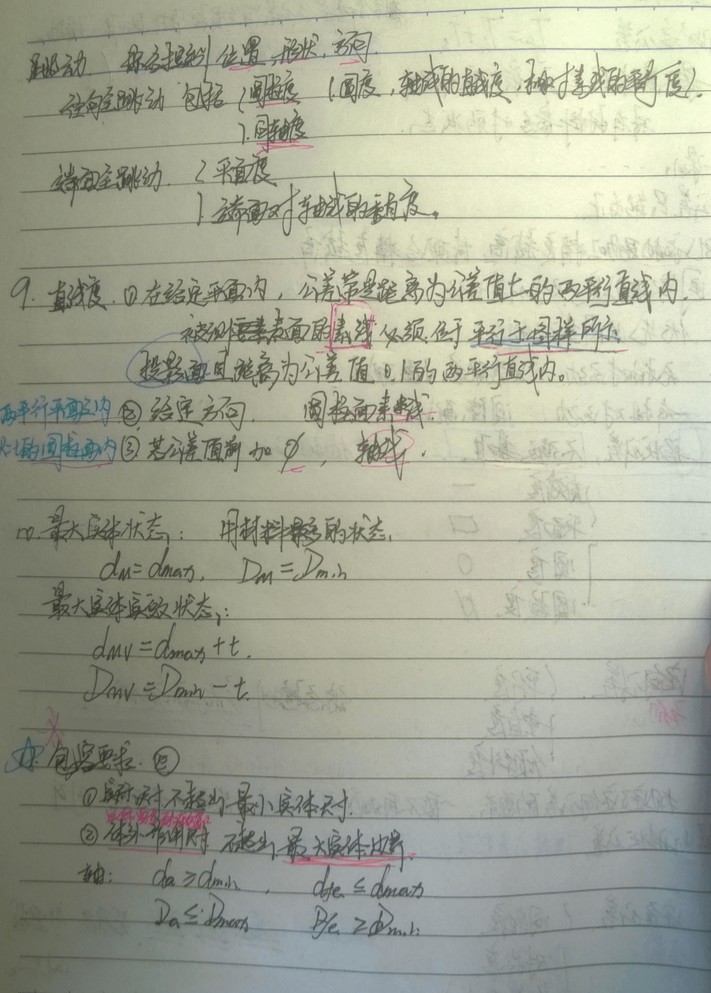 全跳动. 综合控制 位置, 形状, 方向.
径向全跳动 包括 { 圆柱度 (圆度, 轴线的直线度, 素线对素线的平行度).
同轴度
端面全跳动. { 平面度
端面对轴线的垂直度。
9. 直线度. ① 在给定平面内, 公差带是距离为公差值t的两平行直线内.
被测表面的素线 必须位于 平行于图样所示
投影面且距离为公差值0.1的两平行直线内。
两平行平面之内 ② 给定方向. 圆柱面素线
的圆柱面内 ③ 若公差值前加 φ, 轴线.
10. 最大实体状态: 用材料最多的状态.
dM = dmax, DM = Dmin
最大实体实效状态:
dMV = dmax + t.
DMV = Dmin - t.
包容要求. Ⓔ
① 实际尺寸不超出最小实体尺寸.
② 体外作用尺寸 不超出 最大实体边界.
轴: da ≥ dmin, dfe ≤ dmax
Da ≤ Dmax Dfe ≥ Dmin